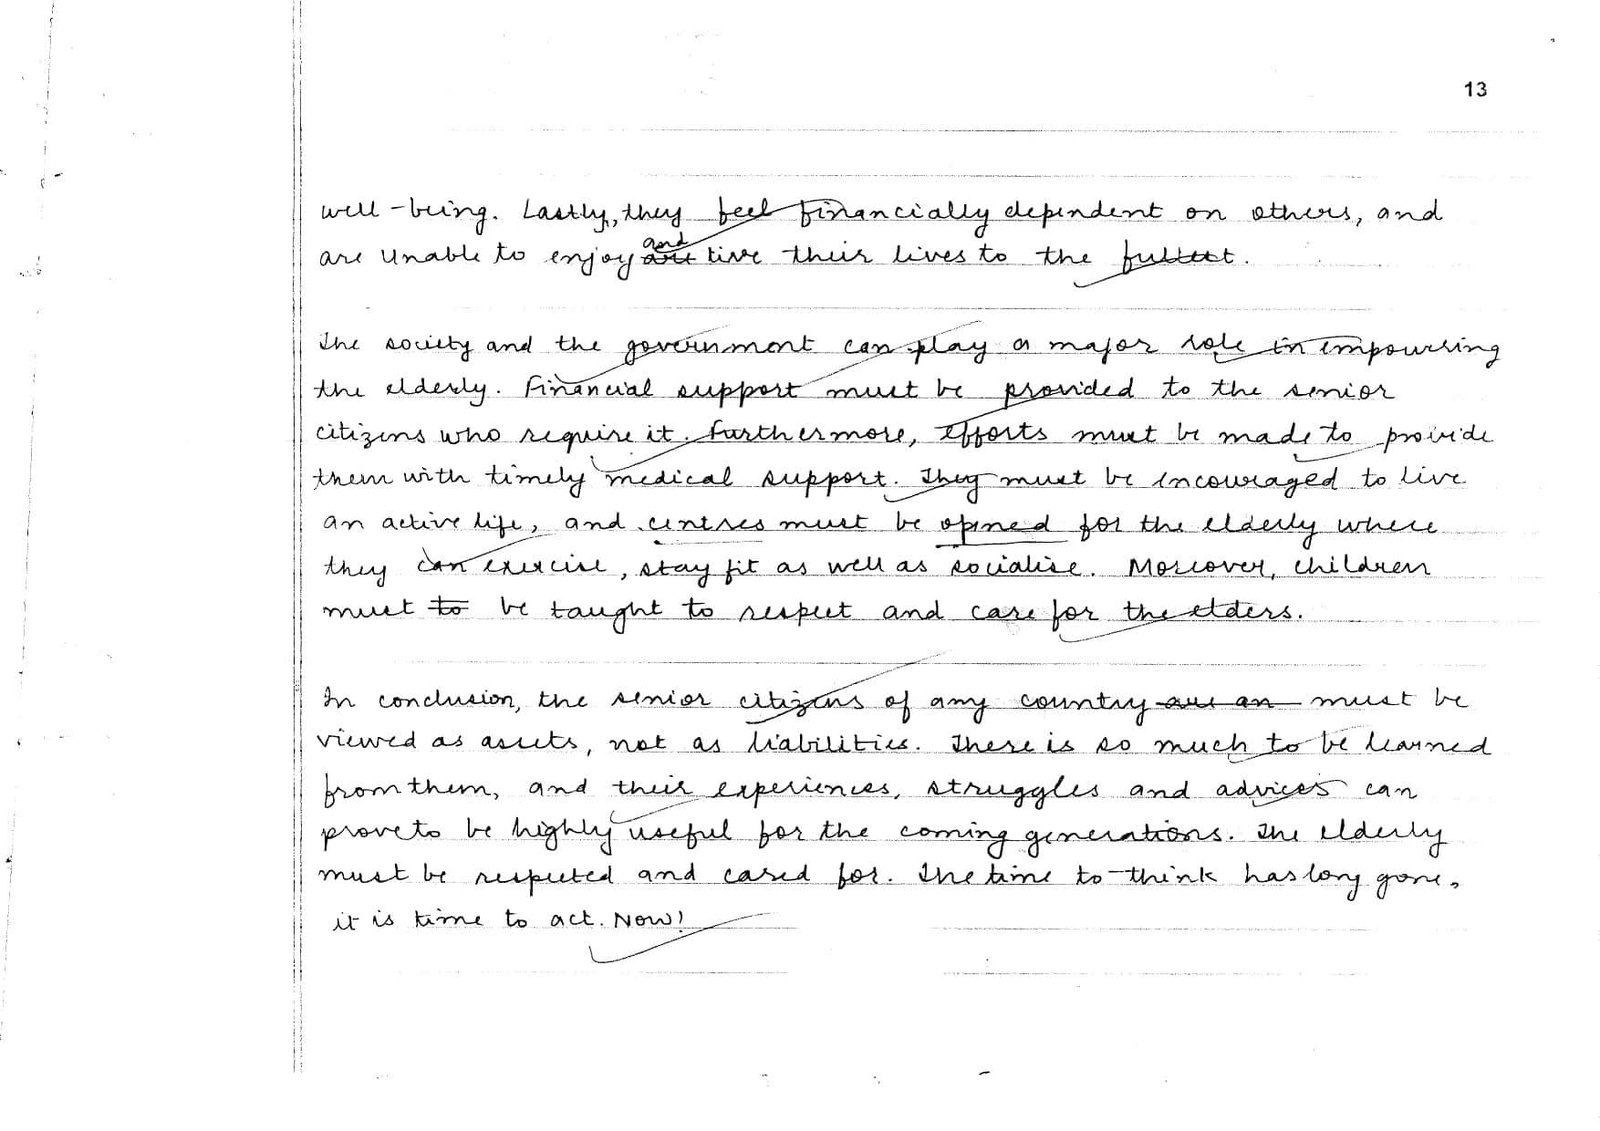 13
well-being. Lastly, they feel financially dependent on others, and
are unable to enjoy and live their lives to the fullest.
The society and the government can play a major role in empowering
the elderly. Financial support must be provided to the senior
citizens who require it. Furthermore, efforts must be made to provide
them with timely medical support. They must be encouraged to live
an active life, and centres must be opened for the elderly where
they can exercise, stay fit as well as socialise. Moreover, children
must to be taught to respect and care for the elders.
In conclusion, the senior citizens of any country are an must be
viewed as assets, not as liabilities. There is so much to be learned
from them, and their experiences, struggles and advices can
prove to be highly useful for the coming generations. The elderly
must be respected and cared for. The time to think has long gone,
it is time to act. Now!